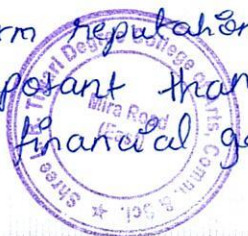 rm reputation
posant than
financial g
Shree L. R. Tiwari Degree College of Arts, Comm. & Sci.
Mira Road
(East)